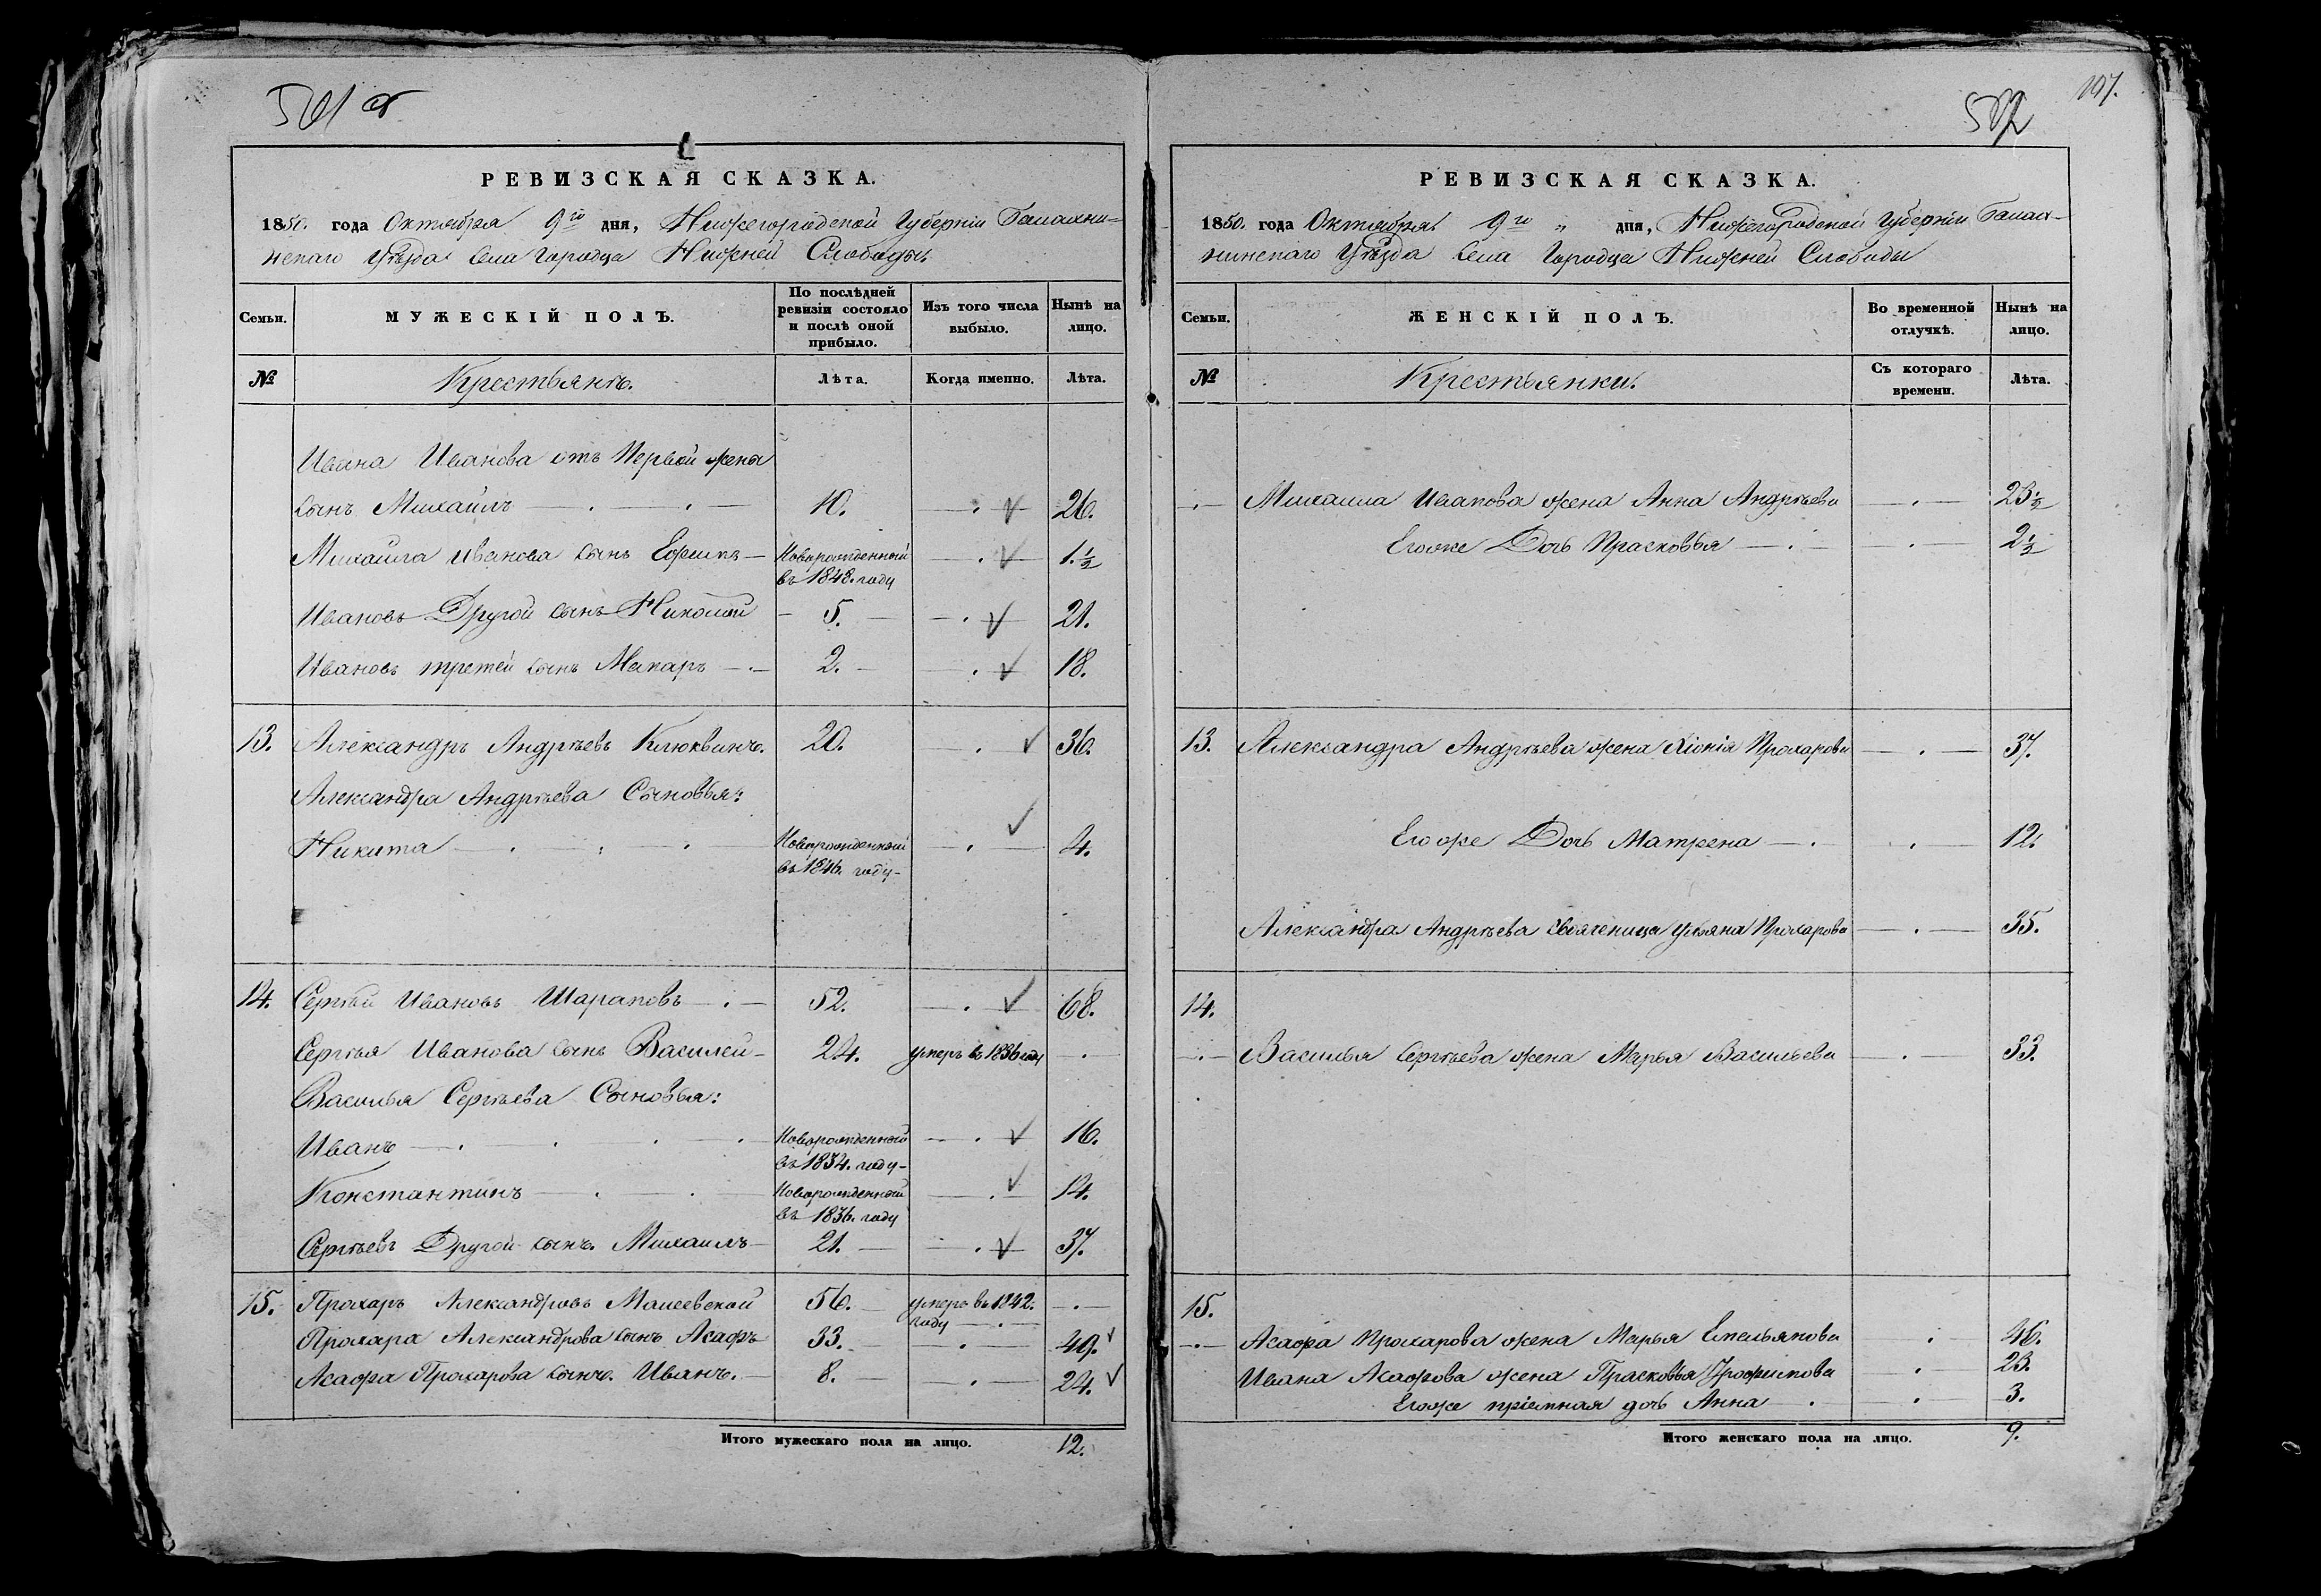 501 об
РЕВИЗСКАЯ СКАЗКА.
1850. года Октября 9го дня, Нижегородской Губерніи Балахни-
нскаго Уѣзда Села Городца Нижней Слободы
Семьи. МУЖЕСКІЙ ПОЛЪ. По послѣдней ревизіи состояло и послѣ оной прибыло. Изъ того числа выбыло. Нынѣ на лицо.
№ Крестьянъ. Лѣта. Когда именно. Лѣта.
Ивана Иванова отъ Первой жены
сынъ Михаилъ 10. 26.
Михаила Иванова сынъ Ефимъ Новорожденный въ 1848. году 1 1/2
Ивановъ Другой сынъ Николай 5. 21.
Ивановъ третей сынъ Макаръ 2. 18.
13. Александръ Андрѣевъ Клюквинъ. 20. 36.
Александра Андрѣева Сыновья:
Никита Новорожденный въ 1846. году 4.
14. Сергѣй Ивановъ Шараповъ 52. 68.
Сергѣя Иванова сынъ Василей 24. умеръ въ 1836 году
Василья Сергѣева Сыновья:
Иванъ Новорожденный въ 1834. году 16.
Константинъ Новорожденный въ 1836. году 14.
Сергѣевъ Другой сынъ Михаилъ 21. 37.
15. Прохаръ Александровъ Моисеевской 56. умеръ въ 1842. году
Прохара Александрова сынъ Асафъ 33. 49.
Асафа Прохарова сынъ Иванъ. 8. 24.
Итого мужескаго пола на лицо. 12.
502
107.
РЕВИЗСКАЯ СКАЗКА.
1850. года Октября 9го " дня, Нижегородской Губерніи Балах-
нинскаго Уѣзда Села Городца Нижней Слободы
Семьи. ЖЕНСКІЙ ПОЛЪ. Во временной отлучкѣ. Нынѣ на лицо.
№ Крестьянки. Съ котораго времени. Лѣта.
Михаила Иванова жена Анна Андрѣева 23 1/2
Егоже Дочь Прасковья 2 1/2
13. Александра Андрѣева жена Хіонія Прохарова 37.
Егоже Дочь Матрена 12.
Александра Андрѣева свояченица Ульяна Прохарова 35.
14.
Василья Сергѣева жена Марья Васильева 33.
15.
Асафа Прохарова жена Марья Емельянова 46.
Ивана Асафова жена Прасковья Трофимова 23.
Егоже пріемная дочь Анна 3.
Итого женскаго пола на лицо. 9.